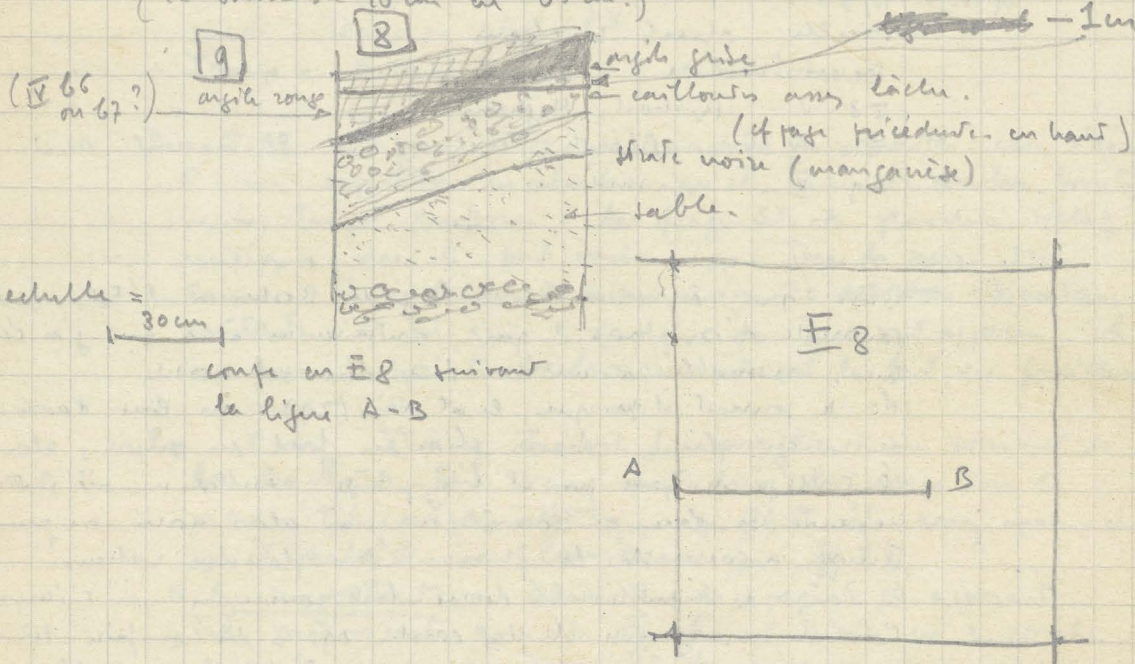 8
9
- 1 cm
(IV b6
ou b7 ?)
argile rouge
argile grise
cailloutis assez lâche.
(cf page précédente en haut)
strate noire (manganèse)
sable.
echelle =
30 cm
coupe en E8 suivant
la ligne A-B
E8
A
B